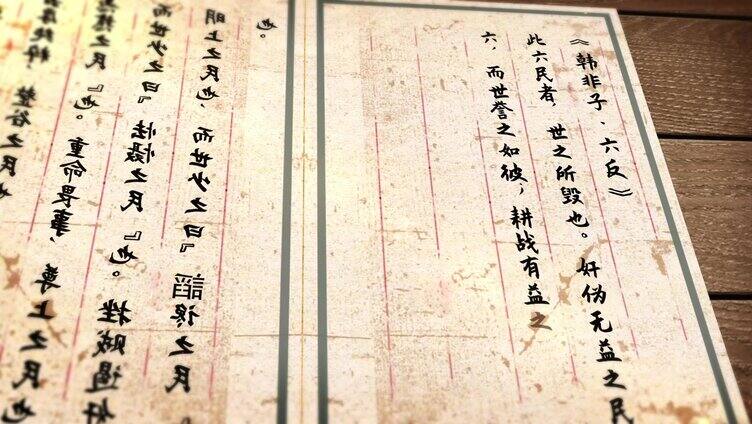 厚纯粹，整谷之民也
戆之民』也。重命畏事，尊上之民也
而世少之曰『怯慑之民』也。挫贼遏奸
明上之民也，而世少之曰『謟谗之民
也。
《韩非子、六反》
此六民者，世之所毁也。奸伪无益之民
六，而世誉之如彼；耕战有益之